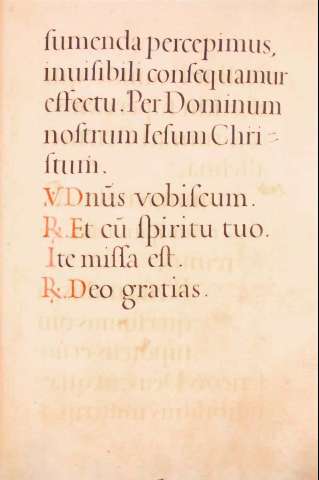 sumenda percepimus,
inuisibili consequamur
effectu. Per Dominum
nostrum Iesum Chri=
stum̄.
℣. Dn̄s vobiscum.
℟. Et cū spiritu tuo.
Ite missa est.
℟. Deo gratias.